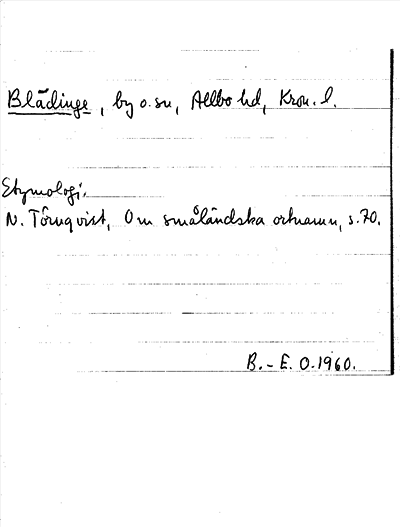 Blädinge, by o. sn, Allbo hd, Kron. l.
Etymologi.
N. Törnqvist, Om småländska ortnamn, s. 70.
B.-E. O. 1960.